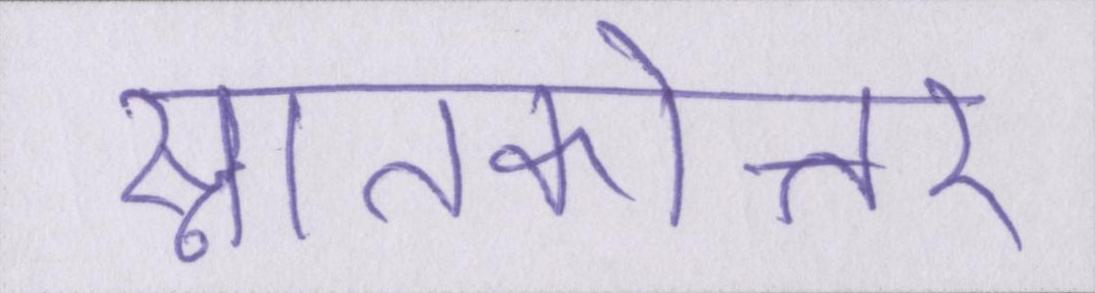 स्नातकोत्तर